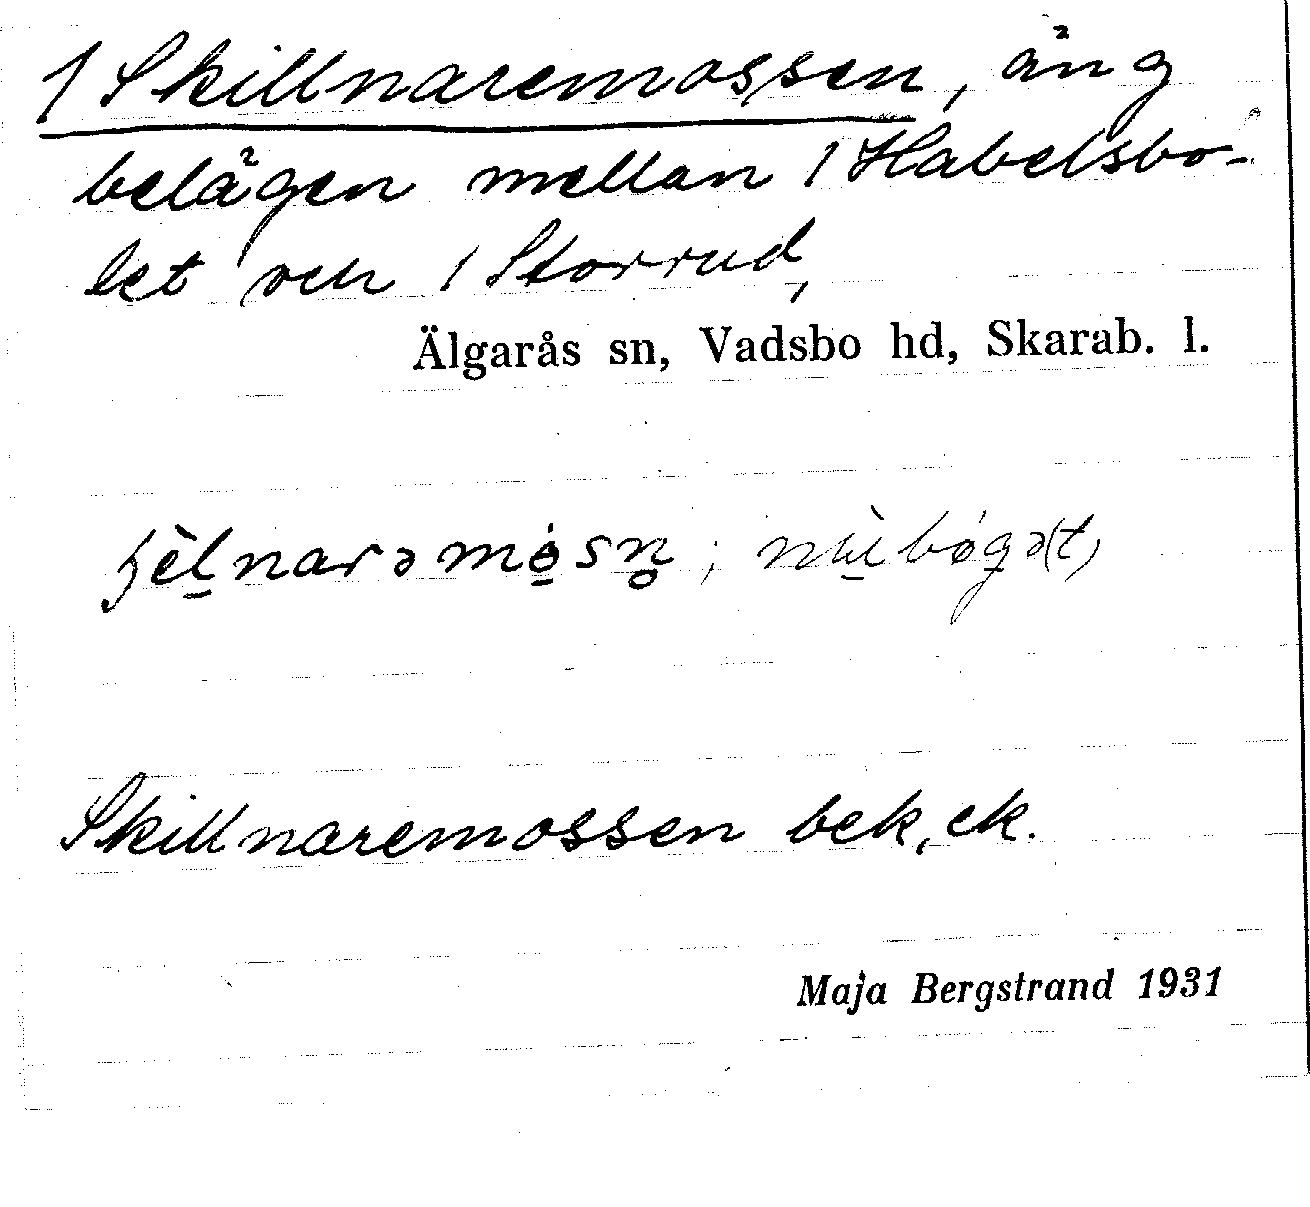 1 Skillnaremossen, äng
belägen mellan 1 Habelsbo-
let och 1 Storrud,
Älgarås sn, Vadsbo hd, Skarab. l.
Skillnaremossen bek, ek.
Maja Bergstrand 1931